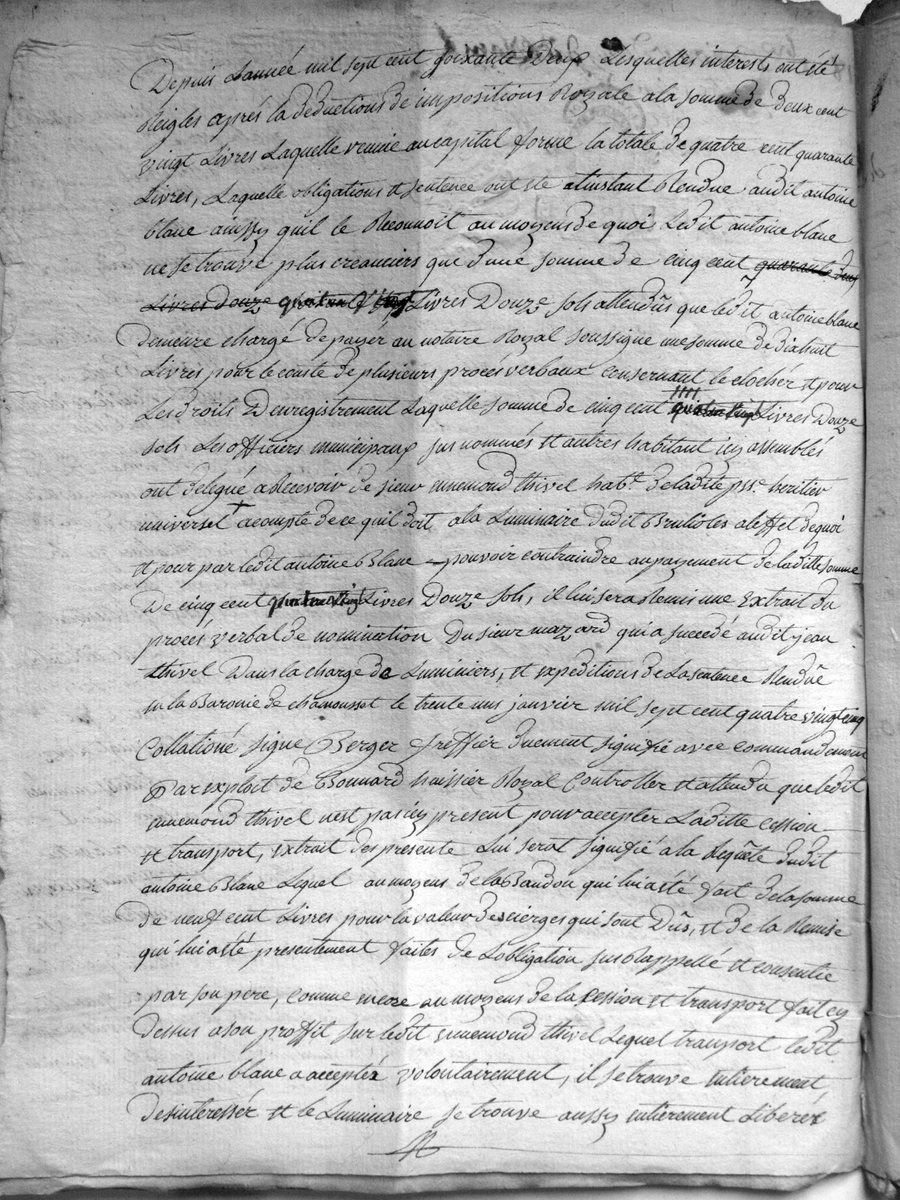 Depuis Lannée mil sept cent soixante Deux Lesquelles interests ont sté
Reigles aprés la deductions de impositions Royale a la somme de deux cent
vingt Livres Laquelle reunie au capital forme la totale de quatre cent quarante
Livres, Laquelle obligations et sentence ont sté a linstant Rendue audit antoine
blanc ainssy quil le Reconnoit au moyens de quoi Ledit antoine blanc
ne se trouve plus creanciers que dune somme de cinq cent quarante deux
Livres Douze quatre vingt Livres Douze sols attendûs que ledit antoine blanc
demeure chargé de payér au notaire Royal soussigne une somme de dixhuit
Livres pour le couste de plusieurs procés verbaux consernant le clochér et pour
Les droits D'enregistrement Laquelle somme de cinq cent quatre vingt Livres Douze
sols Les officiers municipaux sus nommés et autres habitant icy assemblés
ont delegué a Recevoir de sieur ennemond thivel habt. de ladite psse. heritier
universel + acompte de ce quil doit a la Luminaire dudit Brulioles a leffet de quoi
et pour par ledit antoine Blanc pouvoir contraindre au payement de laditte somme
De cinq cent quatre vingt Livres Douze sols, il lui sera Remis une Extrait du
procés verbal de nomination Du sieur mazard qui a succedé audit jean
thivel Dans la charge de Luminiers, et expeditions de La sentence Rendûe
en la Baronie de chamousset le trente uns janvier mil sept cent quatre vingt cinq
Collationé signe Berger Greffier duement signifié avec commandement
Par exploit de Bonnard huissier Royal Controller et attendu que ledit
ennemond thivel nest pas icy present pour accepter Laditte cession
et transport, extrait des presente Lui serat signifié a la Requête dudit
antoine Blanc Lequel au moyens de la Bandon qui lui a sté fait de la somme
De neuf cent Livres pour la valeur des cierges qui sont Dûs, et de la Remise
qui lui a sté presentement faites de Lobligation sus Rappellé et consentie
par son pere, comme encore au moyens de la cession et transport fait cy
dessus a son proffit sur ledit ennemond thivel Lequel transport ledit
antoine blanc a acceptéz volontairement, il se trouve entierement
desinteressér et le Luminaire se trouve aussy entierement Liberéz